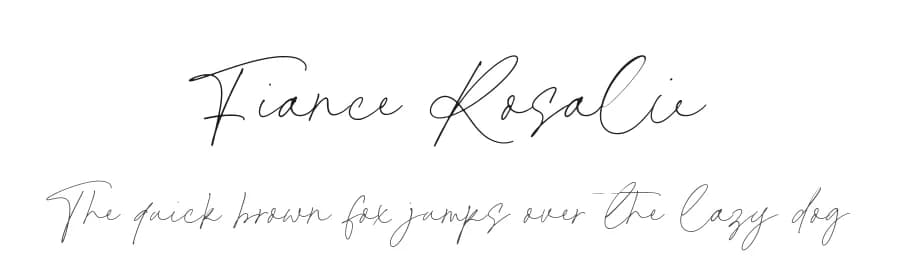 Fiance Rosalie
The quick brown fox jumps over the lazy dog